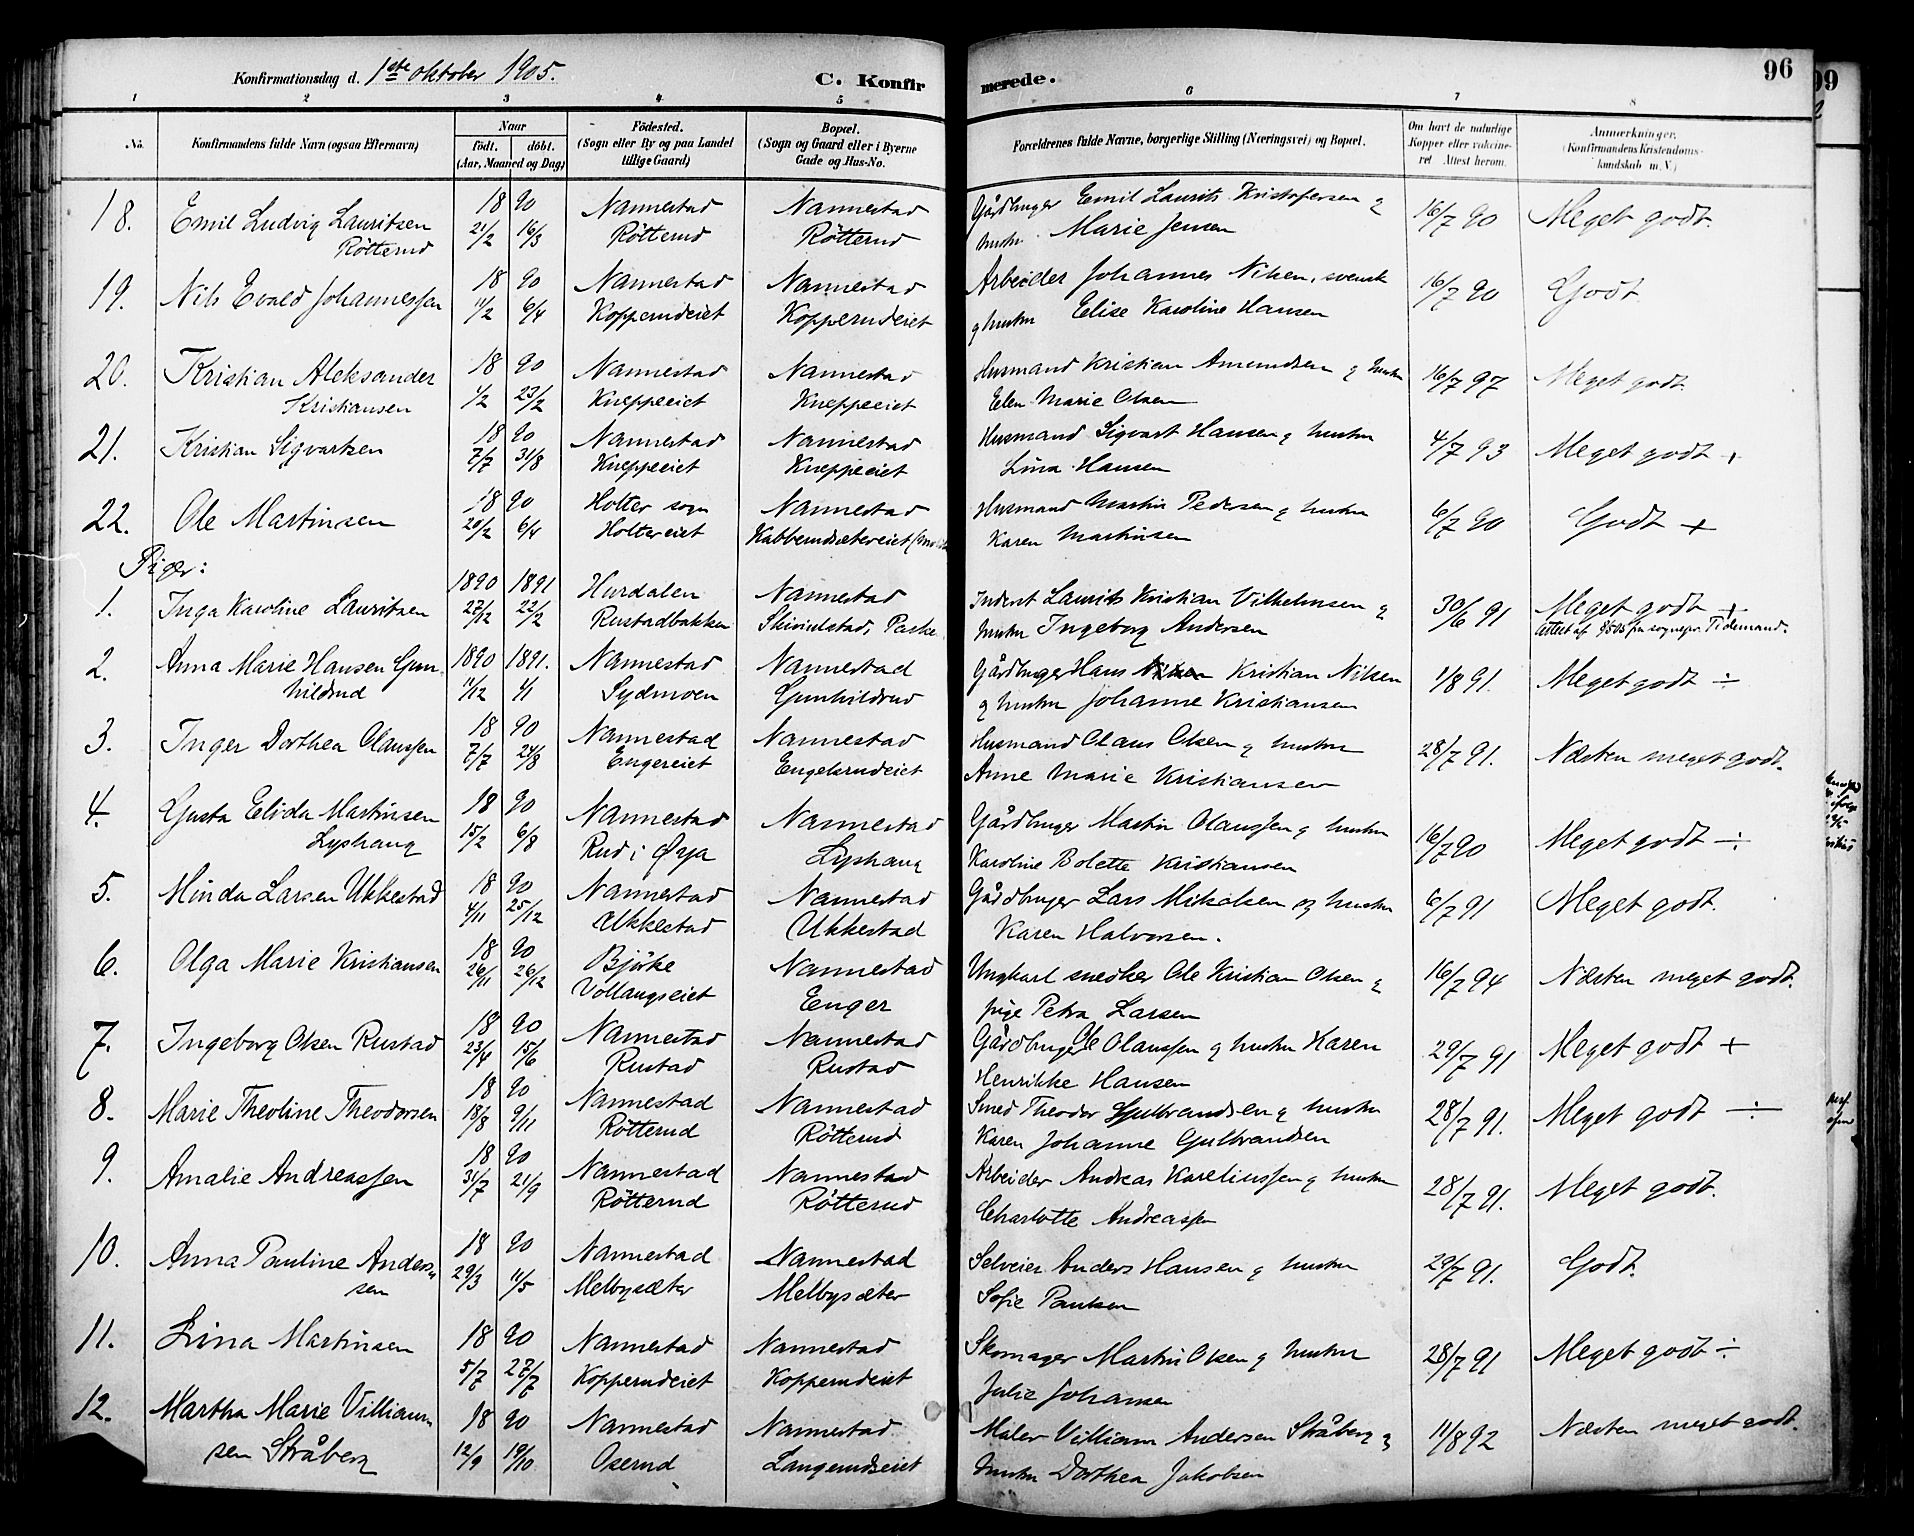 Konfirmationsdag d. 1ste oktober 1905.
C. Konfirmerede.
96
1 2 3 4 5 6 7 8
No. Konfirmandens fulde Navn (ogsaa Efternavn) Naar födt. döbt. (Aar, Maaned og Dag) Födested. (Sogn eller By og paa Landet tillige Gaard) Bopæl. (Sogn og Gaard eller i Byerne Gade og Hus-No. Forældrenes fulde Navne, borgerlige Stilling (Næringsvei) og Bopæl. Om havt de naturlige Kopper eller vakcineret. Attest herom. Anmærkninger. (Konfirmandens Kristendomskundskab m. V.)
18. Emil Ludvig Lauritsen 18 90 Nannestad Nannestad Gårdbruger Emil Laurits Kristofersen og 16/7 90 Meget godt.
Rötterud 21/2 16/3 Rötterud Rötterud hustru Marie Jensen
19. Nils Evald Johannessen 18 90 Nannestad Nannestad Arbeider Johannes Nilsen, svensk 16/7 90 Godt
11/2 6/4 Kopperudeiet Kopperudeiet og hustru Elise Karoline Hansen
20. Kristian Aleksander 18 90 Nannestad Nannestad Husmand Kristian Amundsen og hustru 16/7 97 Meget godt.
Kristiansen 1/2 23/2 Kneppeeiet Kneppeeiet Elen Marie Olsen
21. Kristian Sigvartsen 18 90 Nannestad Nannestad Husmand Sigvart Hansen og hustru 4/7 93 Meget godt +
7/7 31/8 Kneppeeiet Kneppeeiet Lina Hansen
22. Ole Martinsen 18 90 Holter sogn Nannestad Husmand Martin Pedersen og hustru 6/7 90 Godt +
20/2 6/4 Holtereiet Kabberudsætereiet Karen Martinsen
Piger:
1. Inga Karoline Lauritsen 1890 1891 Hurdalen Nannestad Inderst Laurits Kristian Vilhelmsen og 30/6 91 Meget godt +
27/12 22/2 Rustadbakken Skivulstad, Paske hustru Ingeborg Andersen Attest af 9/5 05 fra sognepr. Tidemand.
2. Anna Marie Hansen Gun- 1890 1891. Nannestad Nannestad Gårdbruger Hans Nilsen Kristian Nilsen 1/8 91. Meget godt ÷
hildrud 11/12 1/1 Sydmoen Gunhildrud og hustru Johanne Kristiansen
3. Inger Dorthea Olaussen 18 90 Nannestad Nannestad Husmand Olaus Olsen og hustru 28/7 91. Næsten meget godt.
7/7 24/8 Engereiet Engelsrudeiet Anne Marie Kristiansen
4. Gusta Elida Martinsen 18 90 Nannestad Nannestad Gårdbruger Martin Olaussen og hustru 16/7 90 Meget godt ÷
Lyshaug 15/2 6/8 Rud i Øvja Lyshaug Karoline Bolette Kristiansen
5. Minda Larsen Ukkestad 18 90 Nannestad Nannestad Gårdbruger Lars Mikalsen og hustru 6/7 91 Meget godt.
4/11 25/12 Ukkestad Ukkestad Karen Halvorsen.
6. Olga Marie Kristiansen 18 90 Bjöke Nannestad Ungkarl snedker Ole Kristian Olsen og 16/7 94 Næsten meget godt.
26/11 26/12 Vollaugseiet Enger pige Petra Larsen
7. Ingeborg Olsen Rustad 18 90 Nannestad Nannestad Gårdbruger Ole Olaussen og hustru Karen 29/7 91 Meget godt +
23/4 15/6 Rustad Rustad Henrikke Hansen
8. Marie Theoline Theodorsen 18 90 Nannestad Nannestad Smed Theodor Gulbrandsen og hustru 28/7 91. Meget godt ÷
18/8 9/11 Rötterud Rötterud Karen Johanne Gulbrandsen
9. Amalie Andreassen 18 90 Nannestad Nannestad Arbeider Andreas Kareliussen og hustru 28/7 91. Meget godt.
31/7 21/9 Rötterud Rötterud Charlotte Andreassen
10. Anna Pauline Ander- 18 90 Nannestad Nannestad Selveier Anders Hansen og hustru 29/7 91. Godt.
sen 29/3 11/5 Melbysæter Melbysæter Sofie Paulsen
11. Lina Martinsen 18 90 Nannestad Nannestad Skomager Martin Olsen og hustru 28/7 91 Meget godt ÷
5/7 27/7 Kopperudeiet Kopperudeiet Julie Johansen
12. Martha Marie Villiam- 18 90 Nannestad Nannestad Maler Villiam Andersen Stråberg og 11/8 92 Næsten meget godt.
sen Stråberg 12/9 19/10 Oserud Langerudseiet hustru Dorthea Jakobsen
99